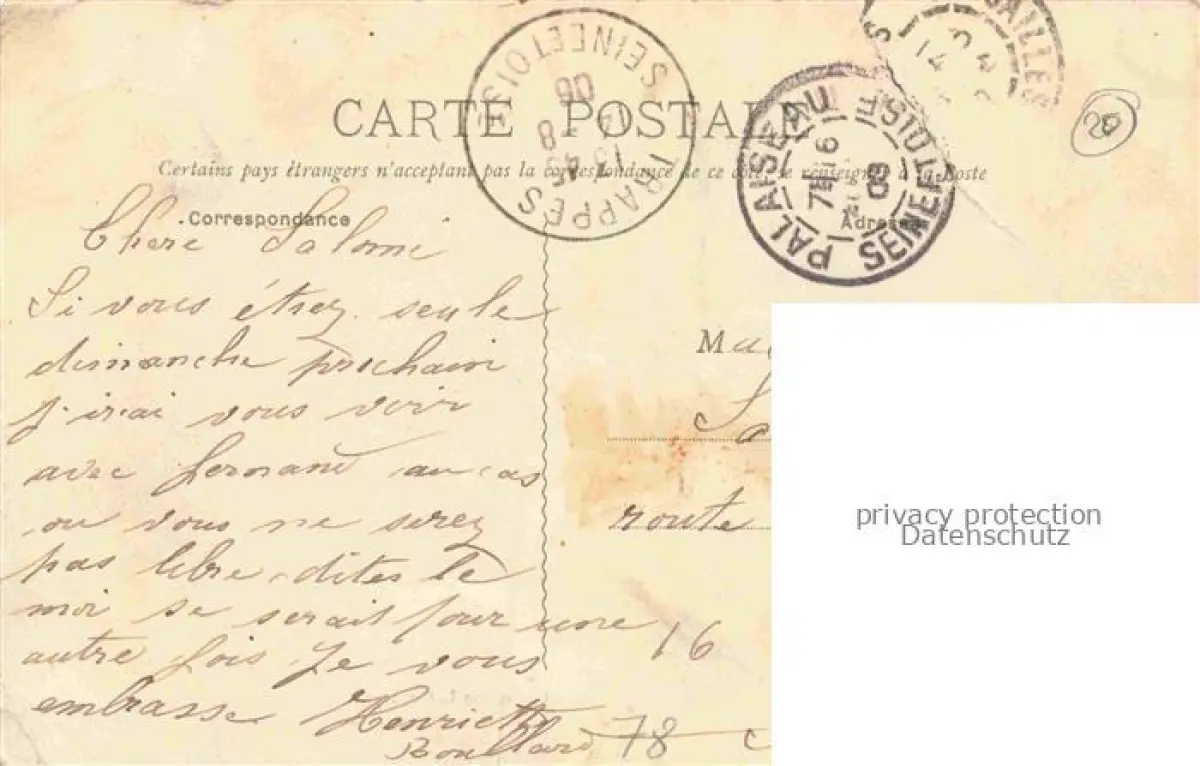 CARTE POSTALE
Certains pays étrangers n'acceptant pas la correspondance de ce côté, se renseigner à la Poste
Correspondance
Adresse
TRAPPES
SEINE ET OISE
17 45
8
08
PALAISEAU
SEINE ET OISE
7 16
08
SAILLES
14
20
Chere Salomé
Si vous étrez seule
dimanche prochain
j'irai vous voir
avec Fernand au cas
ou vous ne serez
pas libre dites le
moi se serait pour une
autre fois Je vous
embrasse Henriette
Mad
route
16
78
privacy protection
Datenschutz